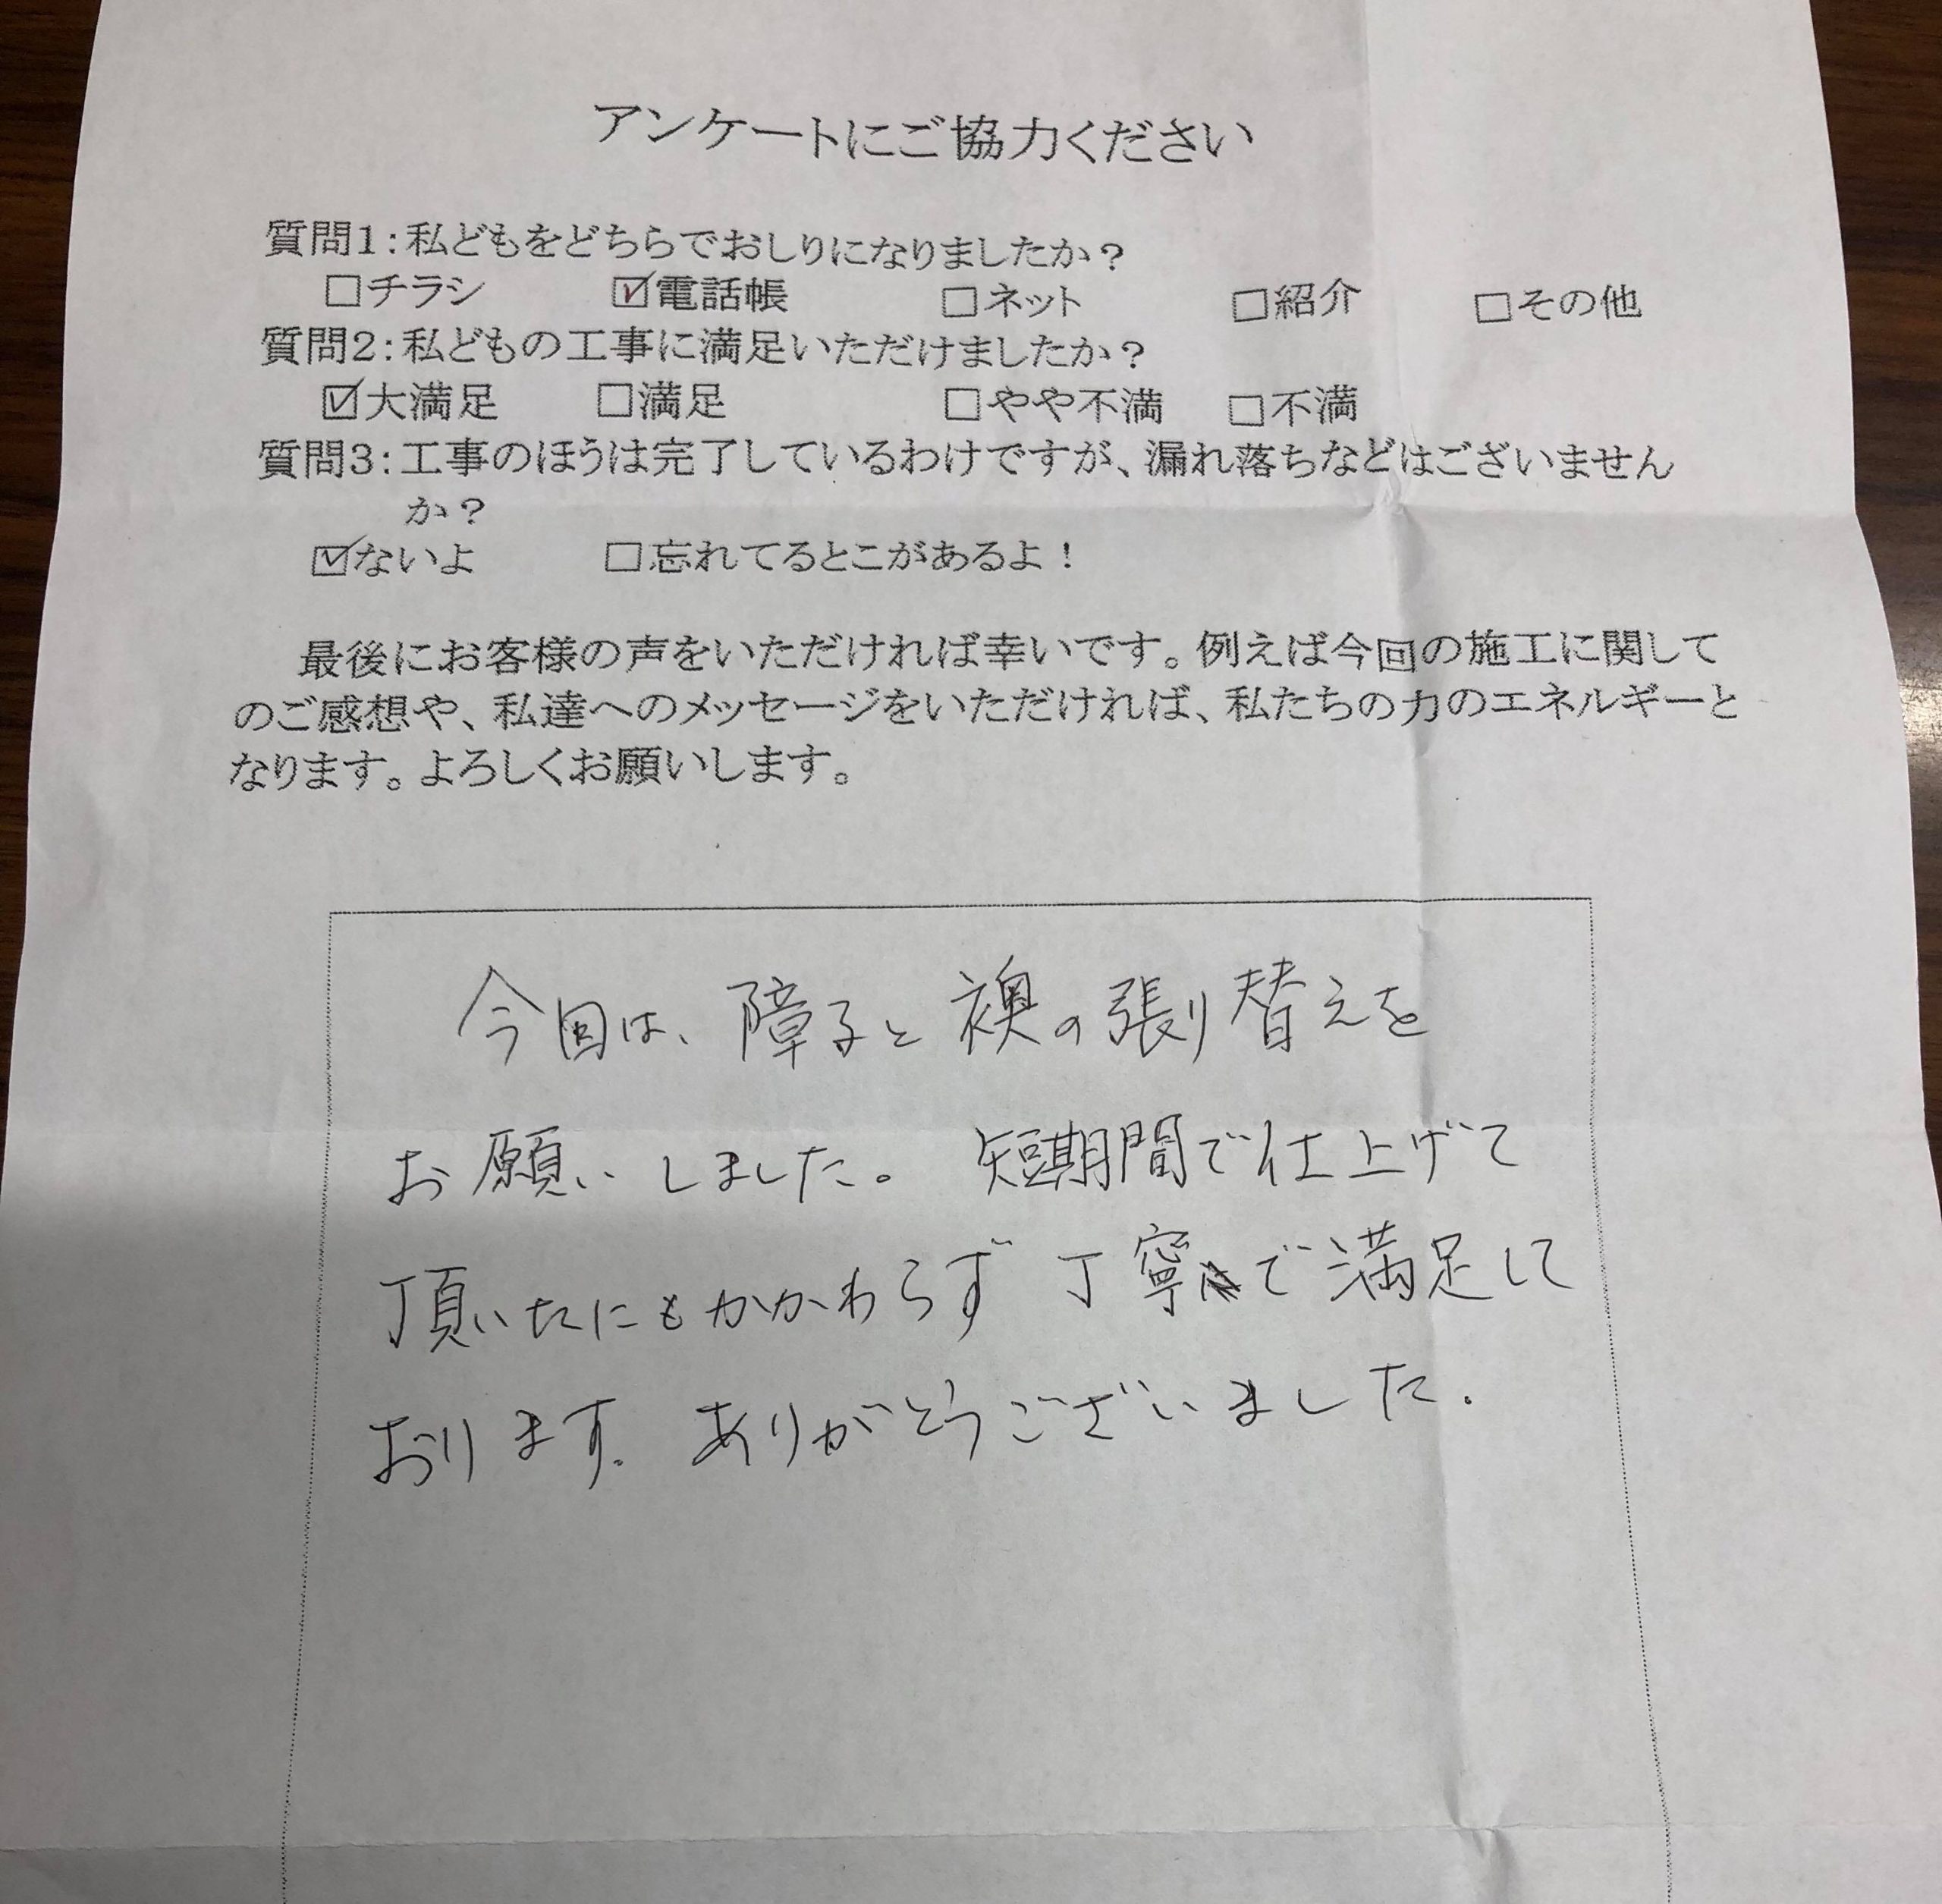 アンケートにご協力ください
質問1:私どもをどちらでおしりになりましたか？
□チラシ ☑電話帳 □ネット □紹介 □その他
質問2:私どもの工事に満足いただけましたか？
☑大満足 □満足 □やや不満 □不満
質問3:工事のほうは完了しているわけですが、漏れ落ちなどはございません
か？
☑ないよ □忘れてるとこがあるよ！
最後にお客様の声をいただければ幸いです。例えば今回の施工に関して
のご感想や、私達へのメッセージをいただければ、私たちの力のエネルギーと
なります。よろしくお願いします。
今回は、障子と襖の張り替えを
お願いしました。短期間で仕上げて
頂いたにもかかわらず丁寧で満足して
おります。ありがとうございました.